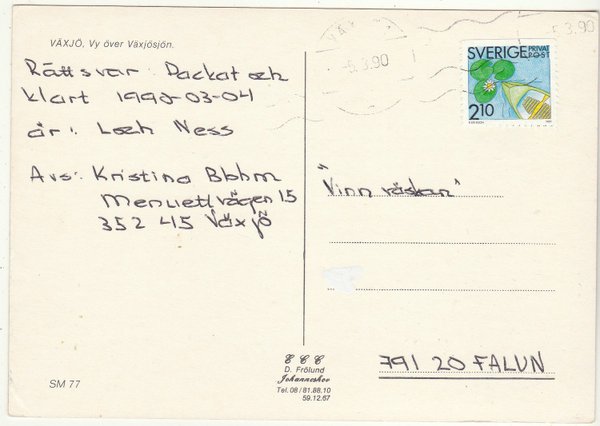 VÄXJÖ, Vy över Växjösjön.
Rättsvar: Packat och
klart 1990-03-04
är: Loch Ness
Avs: Kristina
Menuettvägen 15
352 45 Växjö
SM 77
D. Frölund
Johanneshov
Tel. 08/81.88.10
59.12.67
VÄX
-5.3.90
5.3.90
SVERIGE PRIVAT
POST
2.10
"Vinn väskan"
791 20 FALUN